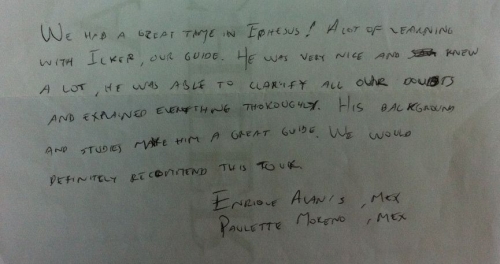 WE HAD A GREAT TIME IN EPHESUS! A LOT OF LEARNING
WITH ILKER, OUR GUIDE. HE WAS VERY NICE AND KNEW
A LOT, HE WAS ABLE TO CLARIFY ALL OUR DOUBTS
AND EXPLAINED EVERYTHING THOROUGHLY. HIS BACKGROUND
AND STUDIES MAKE HIM A GREAT GUIDE. WE WOULD
DEFINITELY RECOMMEND THIS TOUR.
ENRIQUE ALANIS, MEX
PAULETTE MORENO, MEX